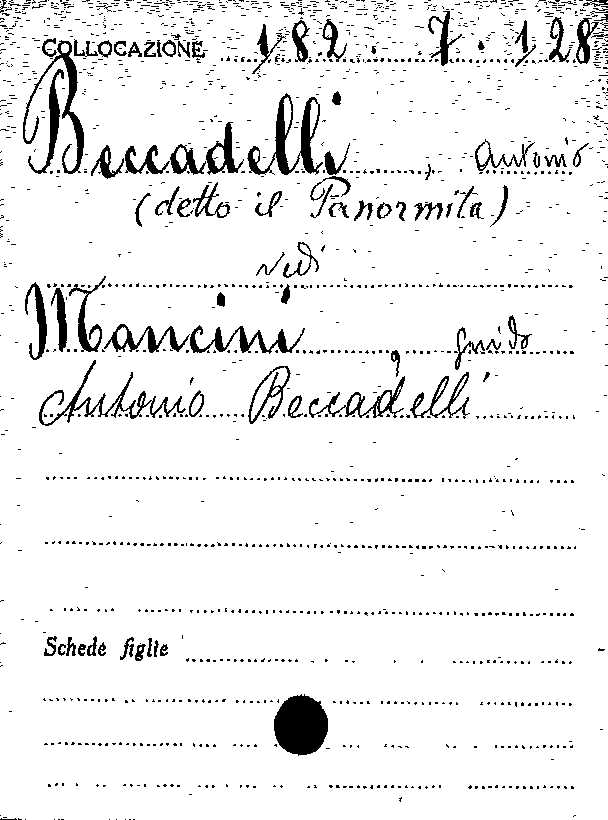 COLLOCAZIONE 182.7.128
Beccadelli, Antonio
(detto il Panormita)
vedi
Mancini, Guido
Antonio Beccadelli
Schede figlie